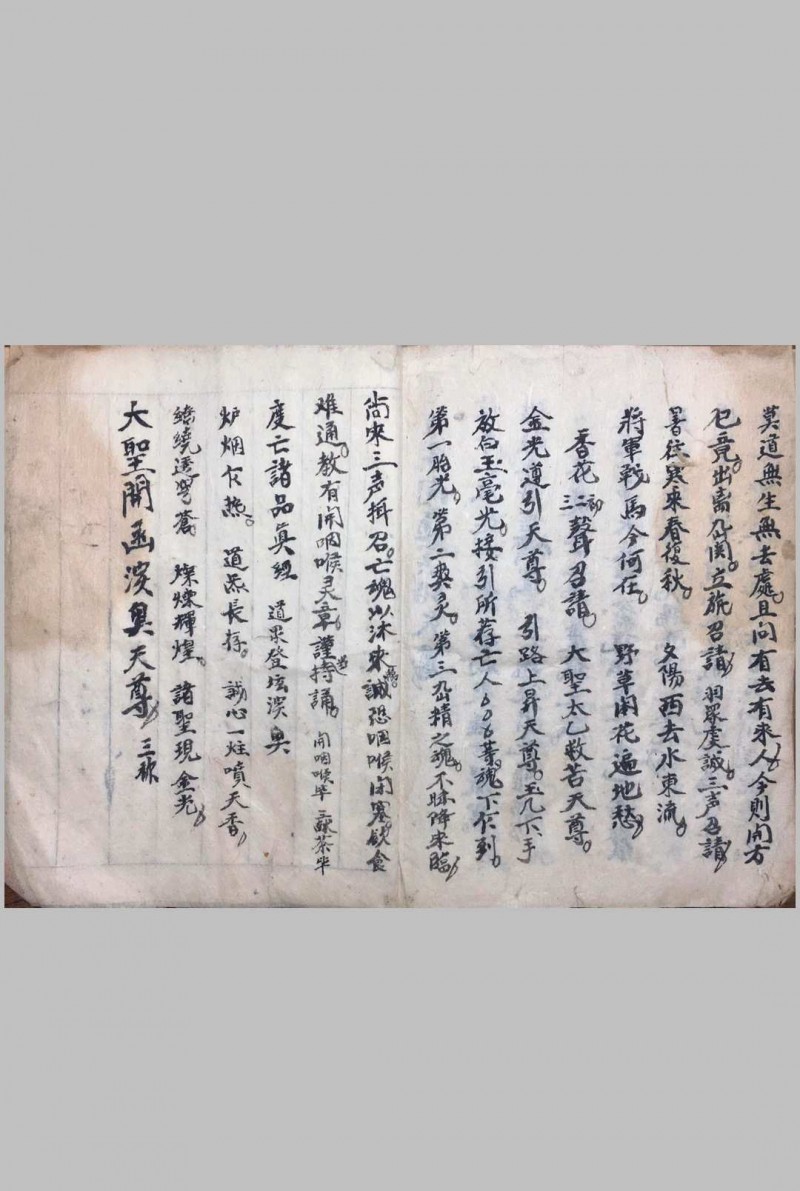 莫道無生無去處。且问有去有来人。今則闭方
已竟。出离關。立旛召請。羽眾虔誠。三声召請。
暑往寒来春復秋。夕陽西去水東流。
將軍戰馬今何在。野草闲花遍地愁。
香花三初二聲召請。大聖太乙救苦天尊。
金光遵引天尊。引路上昇天尊。玉几下手
放白玉毫光。接引所荐亡人等。魂下仁到。
第一胎光。第二爽灵。第三幽精之魂。不昧降来臨。
尚来三声揖召。亡魂以沐来誠。恐咽喉闭塞飲食
难通。教有開咽喉灵章。謹持誦。 開咽喉毕 献茶毕
度亡諸品眞經 道眾登坛演奥
炉烟乍热。 道炁長存。 誠心一炷噴天香。
繚繞透穹蒼 燦爍輝煌。 諸聖現金光。
大聖開函演奥天尊 三秋